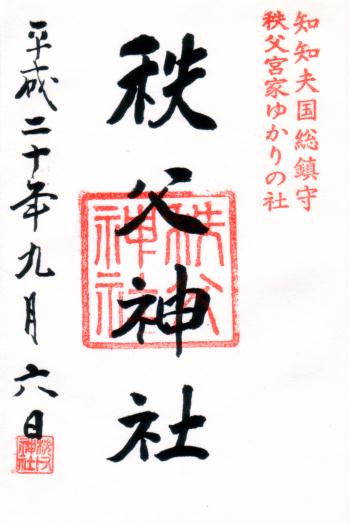 知知夫国総鎮守
秩父宮家ゆかりの社
秩父神社
秩父神社
平成二十年九月六日
秩父神社